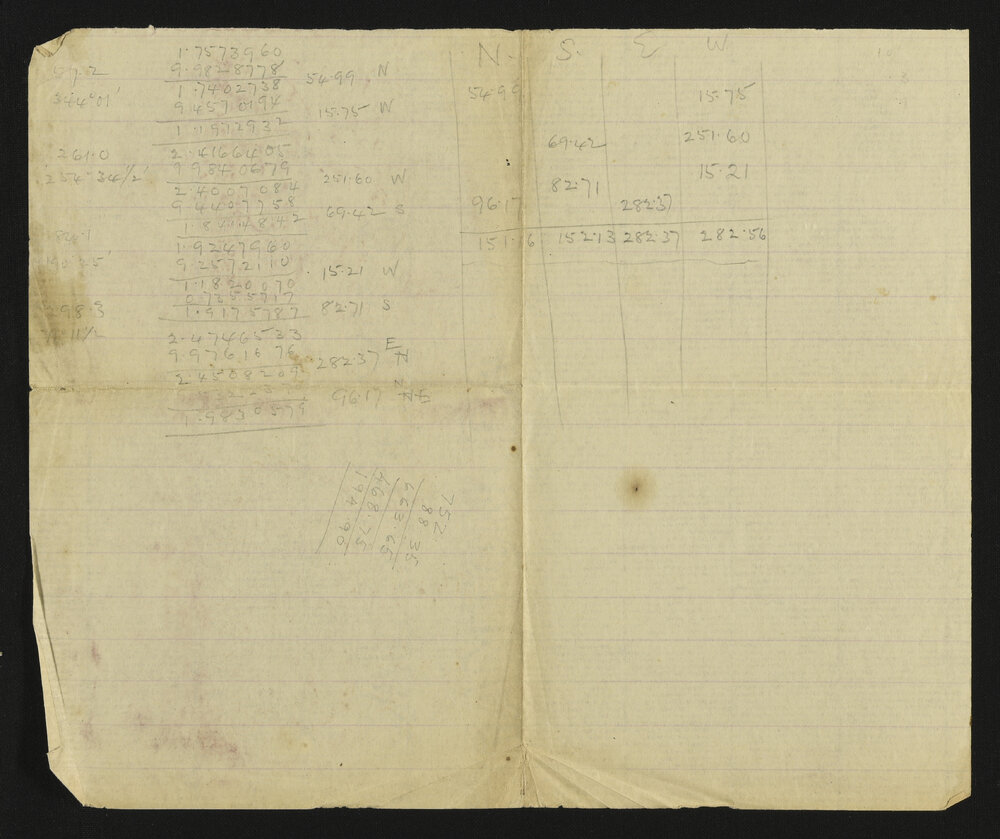 1.7573960
57.2 9.9828778 54.99 N
1.7402738
344°01' 9.4570194 15.75 W
1.1972932
261.0 2.4166405
254°34½' 9.9840679 251.60 W
2.4007084
9.4407758 69.42 S
1.8414842
84.1 1.9247960
190°25' 9.2572110 15.21 W
1.1820070
82.71 S
1.9175787
2.4746533
9.9761676 282.37 E N
2.4508209
96.17 N
1.9830579
N. S. E W
54.99 15.75
69.42 251.60
82.71 15.21
96.17 282.37
151.16 152.13 282.37 282.56
752
88.35
663.65
468.75
194.90